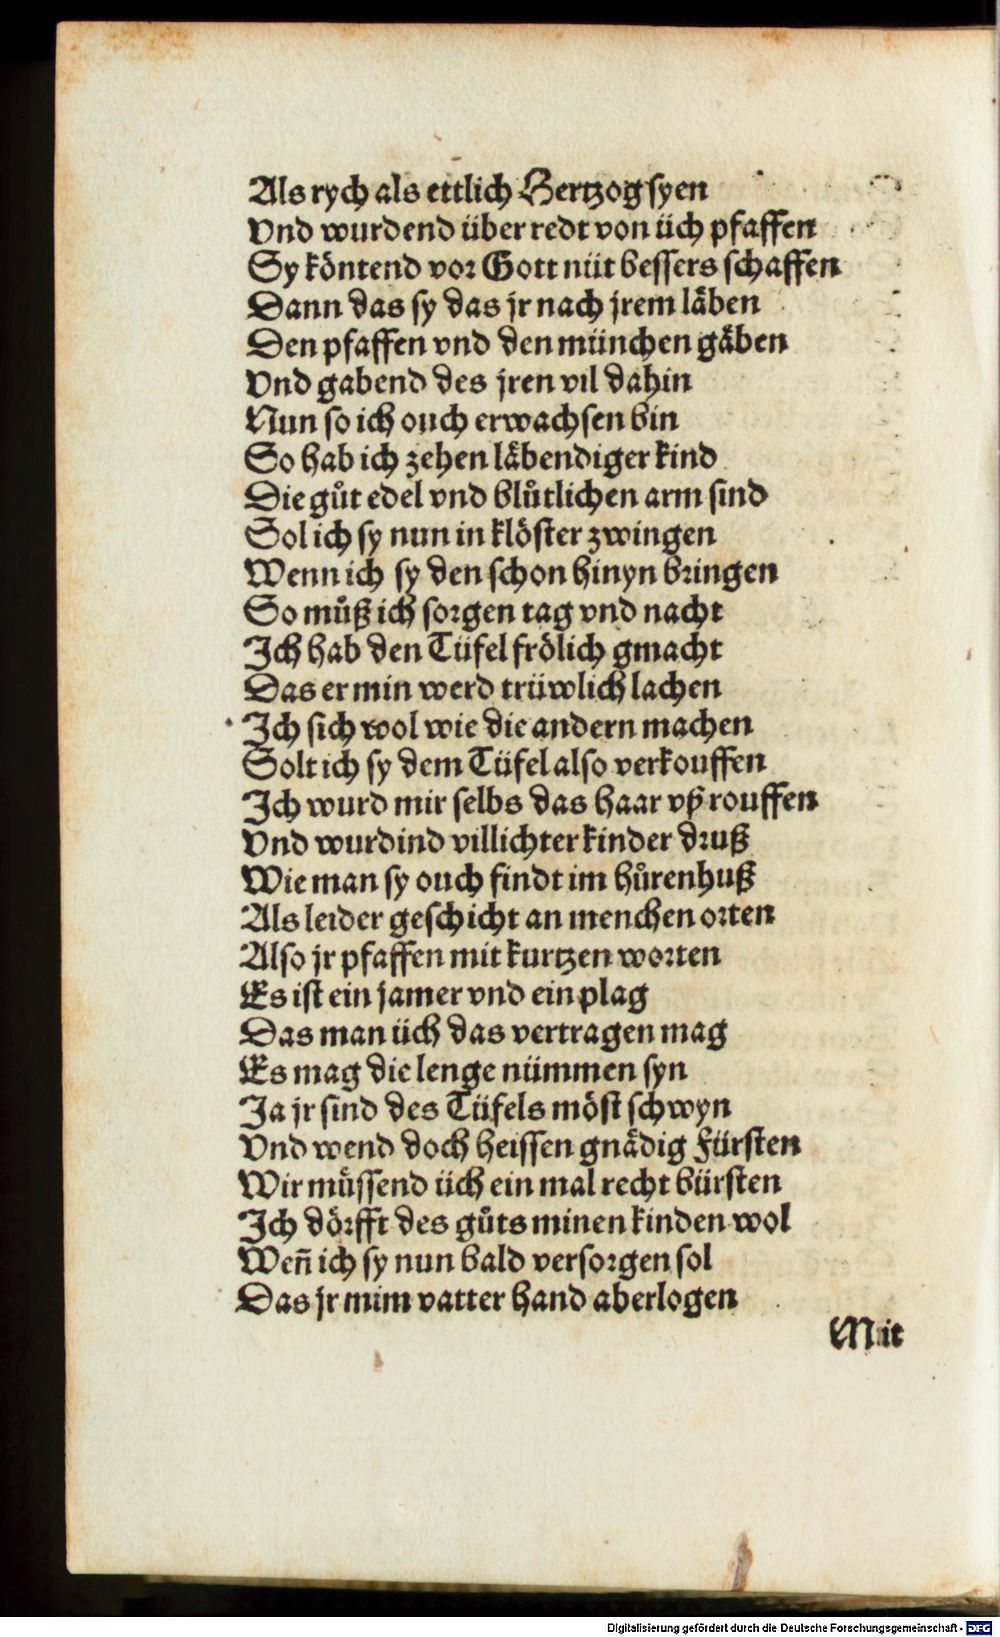 Als rych als ettlich Hertzog syen
Vnd wurdend über redt von üch pfaffen
Sy köntend vor Gott nüt bessers schaffen
Dann das sy das jr nach jrem läben
Den pfaffen vnd den münchen gäben
Vnd gabend des jren vil dahin
Nun so ich ouch erwachsen bin
So hab ich zehen läbendiger kind
Die gůt edel vnd blůtlichen arm sind
Sol ich sy nun in klöster zwingen
Wenn ich sy den schon hinyn bringen
So můß ich sorgen tag vnd nacht
Ich hab den Tüfel frölich gmacht
Das er min werd trüwlich lachen
Ich sich wol wie die andern machen
Solt ich sy dem Tüfel also verkouffen
Ich wurd mir selbs das haar vß rouffen
Vnd wurdind villichter kinder druß
Wie man sy ouch findt im hůrenhuß
Als leider geschicht an menchen orten
Also jr pfaffen mit kurtzen worten
Es ist ein jamer vnd ein plag
Das man üch das vertragen mag
Es mag die lenge nümmen syn
Ja jr sind des Tüfels möst schwyn
Vnd wend doch heissen gnädig Fürsten
Wir müssend üch ein mal recht bürsten
Ich dörfft des gůts minen kinden wol
Weñ ich sy nun bald versorgen sol
Das jr mim vatter hand aberlogen
Mit
Digitalisierung gefördert durch die Deutsche Forschungsgemeinschaft - DFG